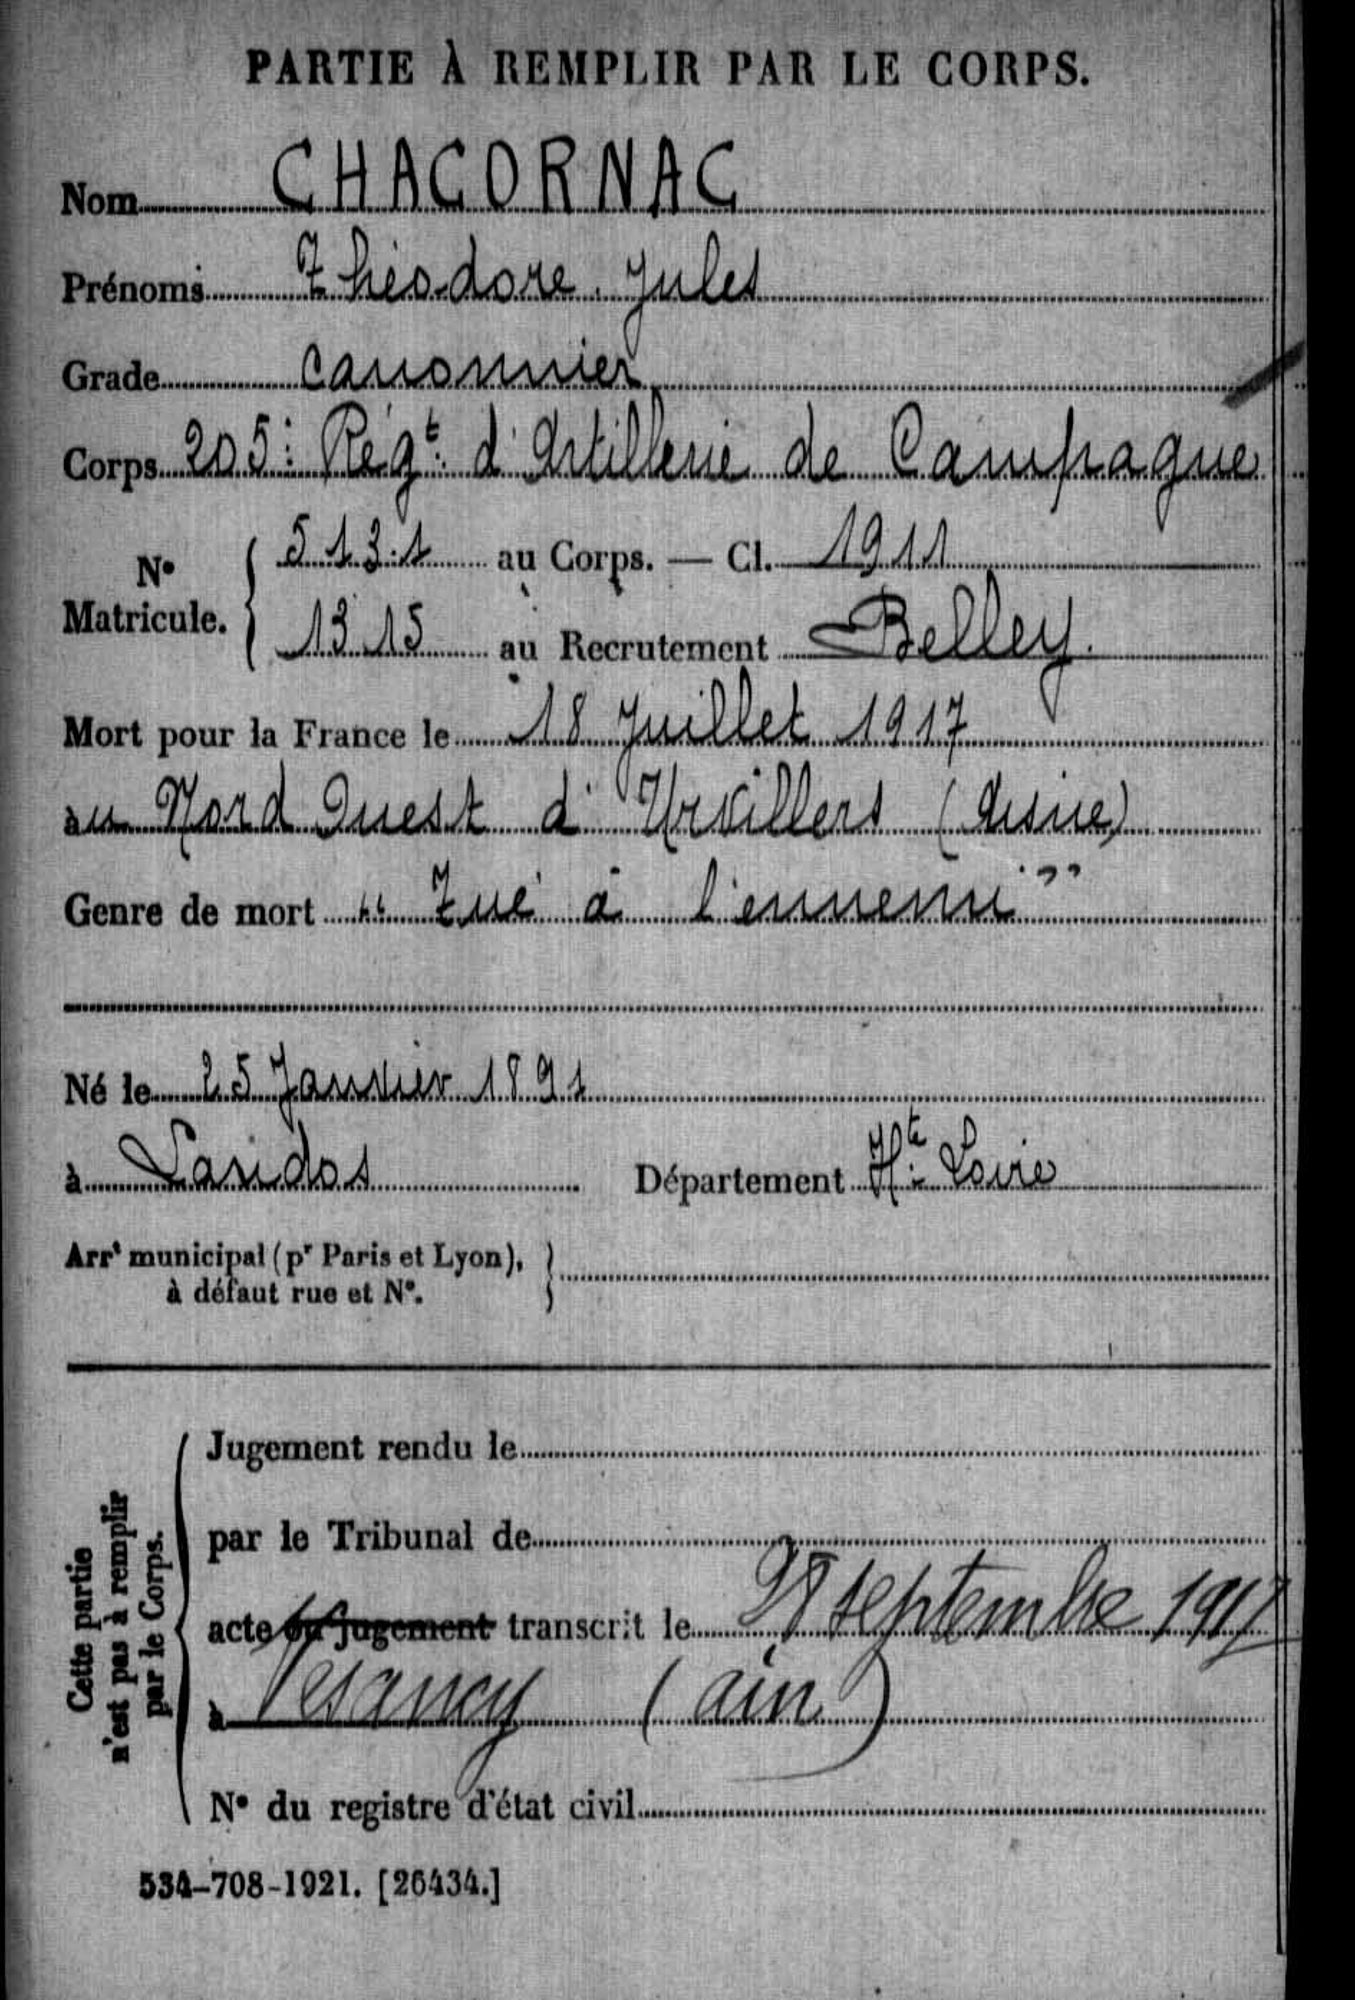 PARTIE À REMPLIR PAR LE CORPS.
Nom CHACORNAC
Prénoms Théodore Jules
Grade Canonnier
Corps 205: Régt: d'Artillerie de Campagne
No Matricule. { 5131 au Corps. — Cl. 1911
1315 au Recrutement Belley.
Mort pour la France le 18 Juillet 1917
au Nord Ouest d'Urvillers (Aisne)
Genre de mort "Tué à l'ennemi"
Né le 25 Janvier 1891
à Landos Département Hte Loire
Arrt municipal (pr Paris et Lyon), }
à défaut rue et No.
Cette partie
n'est pas à remplir
par le Corps.
Jugement rendu le
par le Tribunal de
acte ou jugement transcrit le 28 septembre 1917
à Vesancy (ain)
No du registre d'état civil
534-708-1921. [26434.]